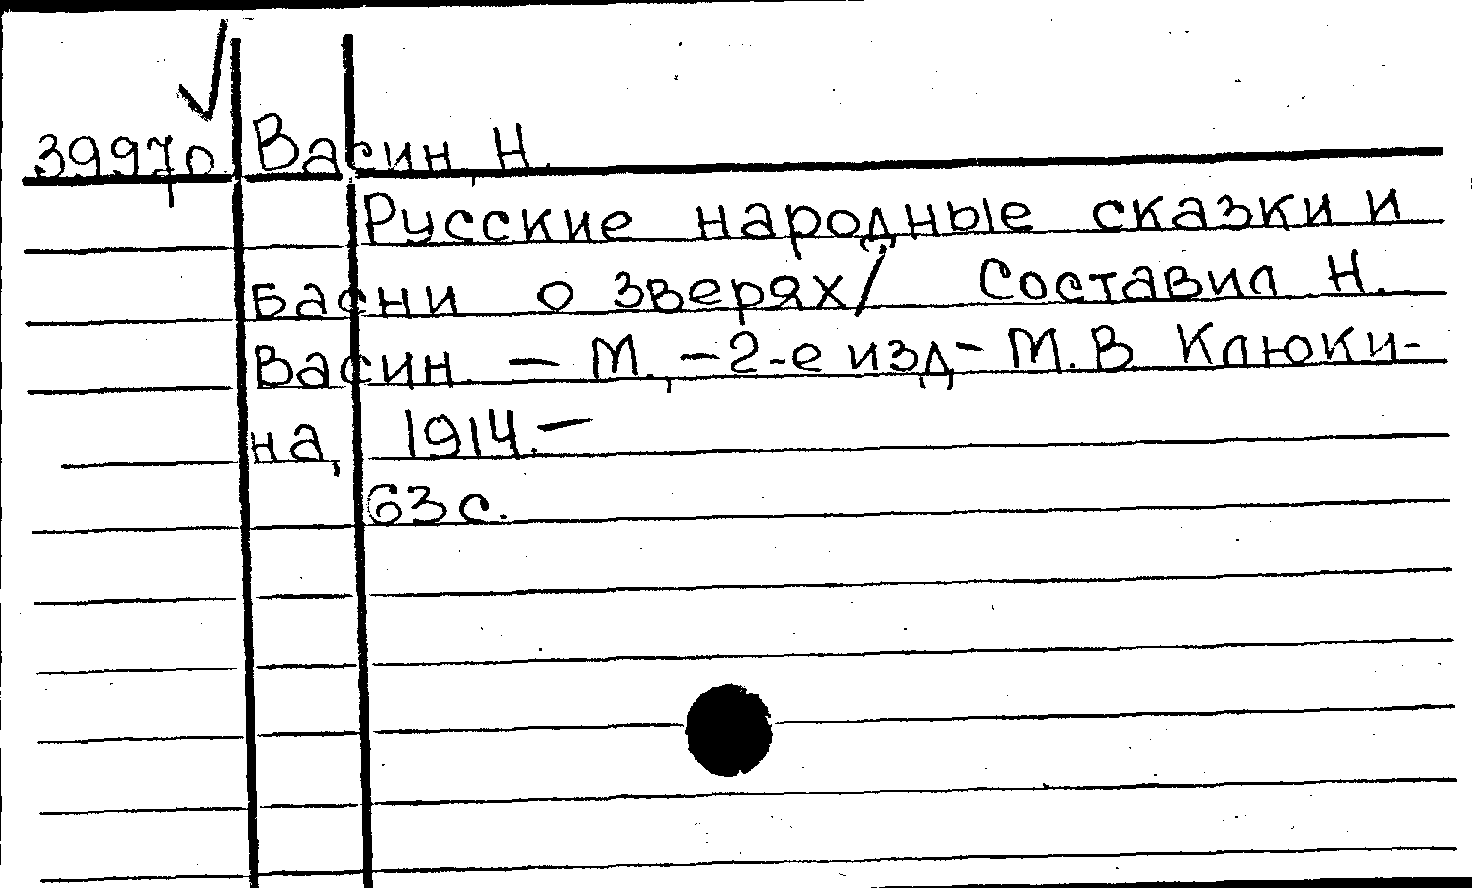 39970 Васин, Н.
Русские народные сказки и
басни о зверях/ Составил Н.
Васин. – М., – 2-е изд, – М.В. Клюки-
на, 1914. –
63 с.